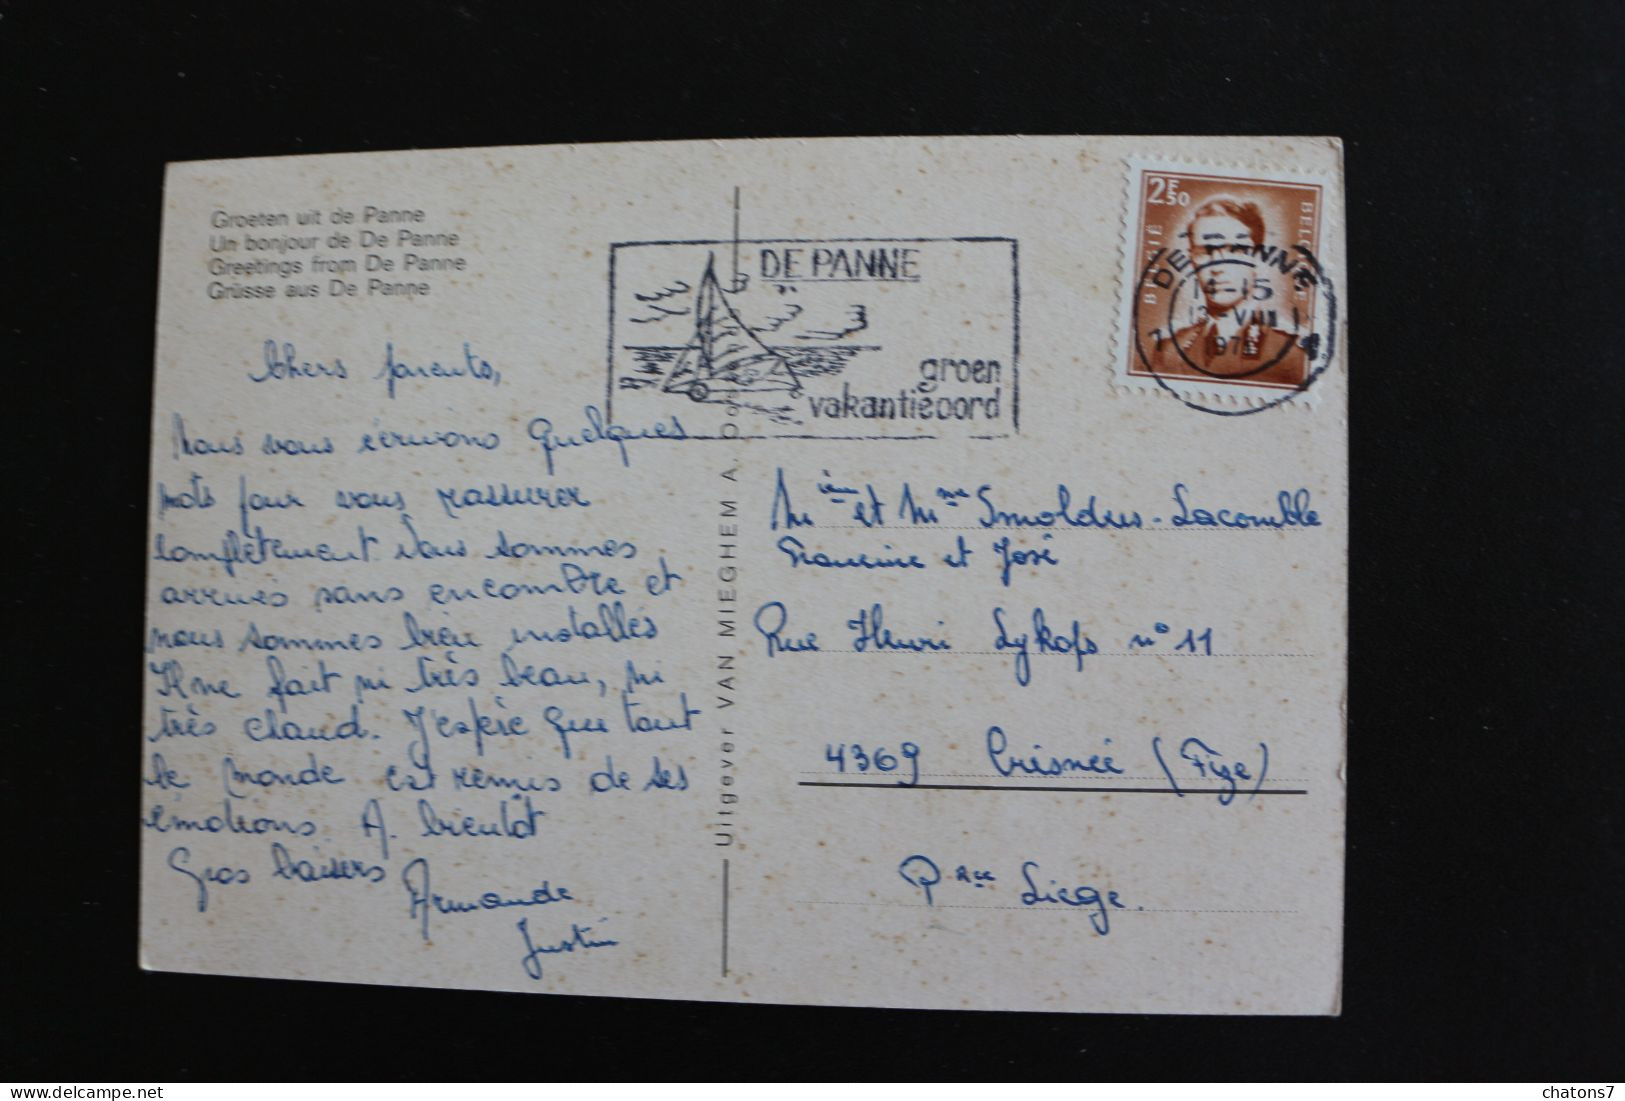 Groeten uit de Panne
Un bonjour de De Panne
Greetings from De Panne
Grüsse aus De Panne
Chers parents,
Nous vous écrivons quelques
mots pour vous rassurer
complètement Nous sommes
arrivés sans encombre et
nous sommes bien installés
Il ne fait ni très beau, ni
très chaud. J'espère que tout
le monde est remis de ses
émotions A. bientôt
Gros baisers
Armande
Justin
Uitgever VAN MIEGHEM A.
DE PANNE
groen
vakantieoord
2F50
BELGIË
BELGIQUE
DE PANNE
14-15
13-VIII
197
1
M ieur et Mme Smolders-Lacomble
Francine et José
Rue Henri Lykops n° 11
4369 Crisnée (Fize)
Pnce Liège.
delcampe.net
chatons7